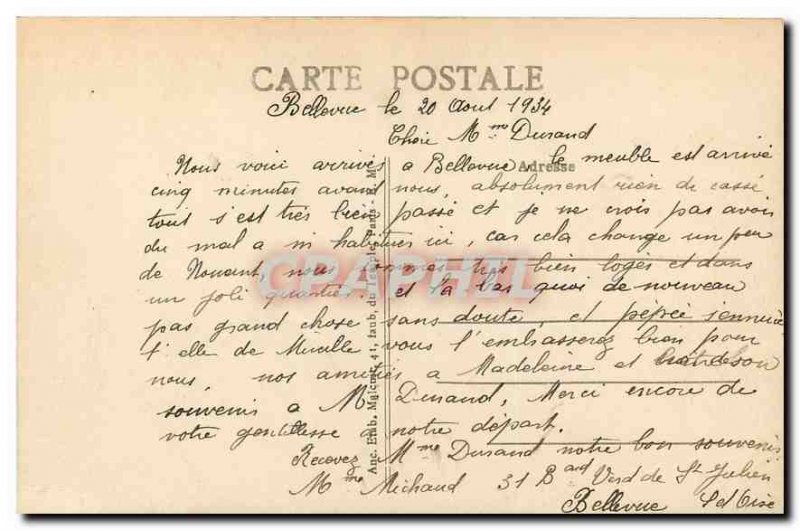 CARTE POSTALE
Bellevue le 20 Aout 1934
Chère Mme Durand
Nous voici arrivés a Bellevue, le meuble est arrivé
Adresse
cinq minutes avant nous, absolument rien de cassé
tout s'est très bien passé et je ne crois pas avoir
du mal a m habituer ici, car cela change un peu
de nous sommes très bien logés et dans
un joli quartier. et la bas quoi de nouveau
pas grand chose sans doute et pépée s'ennuie
t'elle de vous l'embrasserez bien pour
nous. nos amitiés a Madeleine et son
souvenir a M. Durand, Merci encore de
votre gentillesse a notre départ.
Recevez Mme Durand notre bon souvenir
Mme Michaud 31 Bard Verd de St Julien
Bellevue S et Oise
Anc. Etab. Malcuit, 41, faub. du Temple, Paris
CPAPHIL